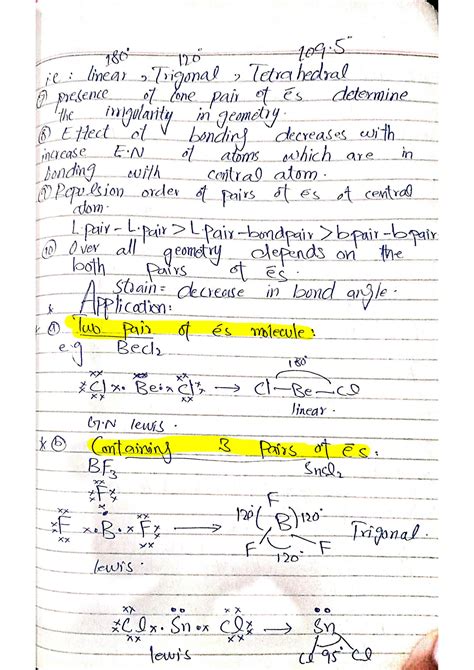 180° 120° 109.5°
i.e: linear, Trigonal, Tetrahedral
⑦ presence of lone pair of ēs determine
the irrigularity in geometry.
⑧ Effect of bonding decreases with
increase E.N of atoms which are in
bonding with central atom.
⑨ Repulsion order of pairs of ēs of central
atom.
L.pair - L.pair > L pair - bondpair > b pair - b pair
⑩ Over all geometry depends on the
both pairs of ēs.
Strain = decrease in bond angle.
* Application:
* ⓐ Two pair of ēs molecule:
e.g BeCl2
180°
Cl x. Be .x Cl → Cl — Be — Cl
linear.
G.N lewis.
* ⓑ Containing 3 Pairs of ēs:
BF3 SnCl2
F F
F x.B.x F → 120° B 120° Trigonal.
F F
120°
lewis.
Cl x. Sn .x Cl → Sn
lewis Cl 95° Cl